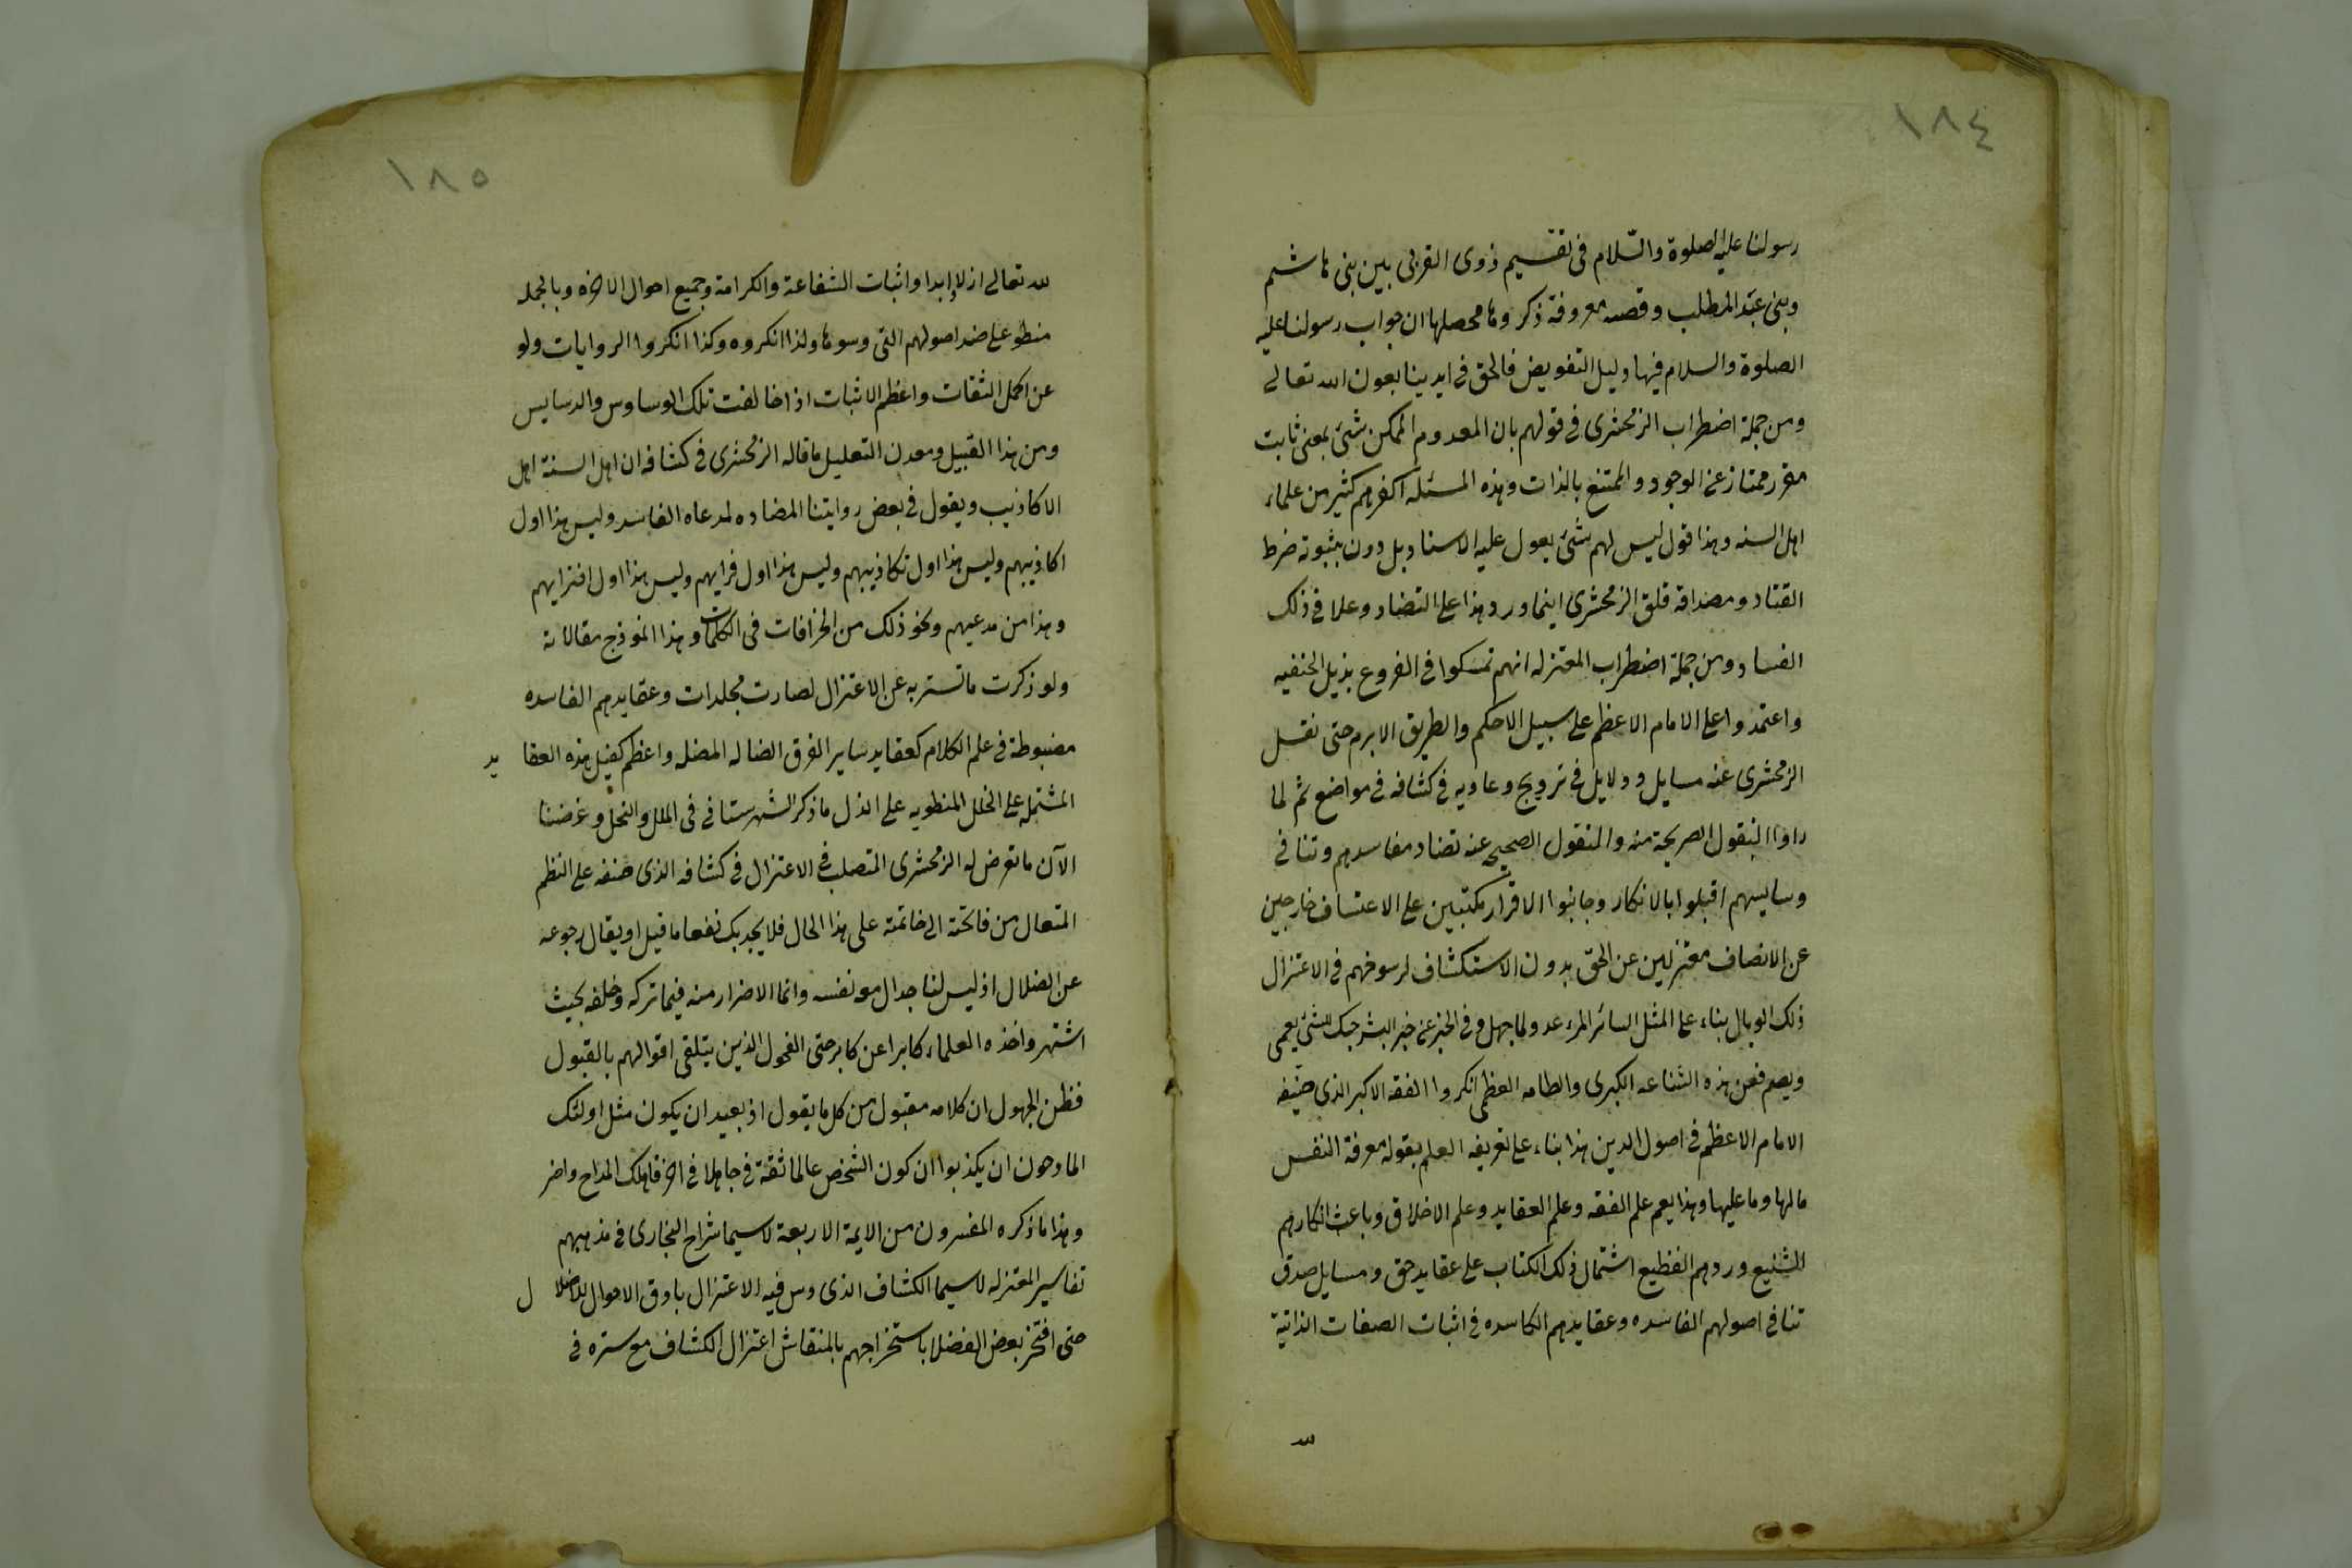 ١٨٤
رسولنا عليه الصلوة والسّلام فى تقسيم ذوى القربى بين بنى هاشم
وبنى عبد المطلب وقصه معروفة ذكروها محصلها ان جواب رسولنا عليه
الصلوة والسلام فيها دليل التفويض فالحق فى ايدينا بعون الله تعالى
ومن جملة اضطراب الزمخشرى فى قولهم بان المعدوم الممكن شئ بمعنى ثابت
مقرر ممتاز عن الوجود والممتنع بالذات وهذه المسئله اكفرهم كثير من علماء
اهل السنه وهذا قول ليس لهم شئ يعول عليه الاسناد بل دون ثبوته خرط
القتاد ومصداقه قلق الزمخشرى اينما ورد هذا على التضاد وعلا فى ذلك
الفساد ومن جملة اضطراب المعتزله انهم تمسكوا فى الفروع بذيل الحنفيه
واعتمدوا على الامام الاعظم على سبيل الاحكم والطريق الابرم حتى نقل
الزمخشرى عنه مسايل ودلايل فى ترويج دعاويه فى كشافه فى مواضع ثم لما
راوا النقول الصريحة منه والمنقول الصحيح عنه تضاد مفاسدهم وتنافى
دسايسهم اقبلوا بالانكار وجانبوا الاقرار مكتبين على الاعتساف خارجين
عن الانصاف معتزلين عن الحق بدون الاستكشاف لرسوخهم فى الاعتزال
ذلك الوبال بناء على المثل السائر المرء عدو لما جهل وفى الخبر عن خير البشر حبك للشئ يعمى
ويصم فعن هذه الشناعه الكبرى والطامه العظمى انكروا الفقه الاكبر الذى صنفه
الامام الاعظم فى اصول الدين هذا بناء على تعريفه العلم بقوله معرفة النفس
مالها وما عليها وهذا يعم علم الفقه وعلم العقايد وعلم الاخلاق وباعث انكارهم
الشنيع وردهم الفظيع اشتمال ذلك الكتاب على عقايد حق ومسايل صدق
تنافى اصولهم الفاسده وعقايدهم الكاسده فى اثبات الصفات الذاتية
لله
١٨٥
لله تعالى ازلا وابدا واثبات الشفاعة والكرامة وجميع احوال الاخره وبالجمله
منطو على ضد اصولهم التى دسوها ولذا انكروه وكذا انكروا الروايات ولو
عن اكمل الثقات واعظم الاثبات اذا خالفت تلك الوساوس والدسايس
ومن هذا القبيل ومعدن التعليل ما قاله الزمخشرى فى كشافه ان اهل السنة اهل
الاكاذيب ويقول فى بعض روايتنا المضاده لمدعاه الفاسد وليس هذا اول
اكاذيبهم وليس هذا اول تكاذيبهم وليس هذا اول فرايهم وليس هذا اول افترايهم
وهذا من مدعيهم ونحو ذلك من الخرافات فى الكلمات وهذا انموذج مقالاته
ولو ذكرت ما تستر به عن الاعتزال لصارت مجلدات وعقايدهم الفاسده
مضبوطة فى علم الكلام كعقايد ساير الفرق الضاله المضله واعظم كفيل هذه العقايد
المشتمله على الخلل المنطويه على الذل ما ذكر الشهرستانى فى الملل والنحل وغرضنا
الآن ما تعرض له الزمخشرى المتصلب فى الاعتزال فى كشافه الذى صنفه على النظم
المتعال من فاتحته الى خاتمته على هذا الحال فلا يجديك نفعا ما قيل او يقال رجوعه
عن الضلال اذ ليس لنا جدال مع نفسه وانما الاضرار منه فيما تركه وخلفه بحيث
اشتهر واخذه العلماء كابرا عن كابر حتى الفحول الذين يتلقى اقوالهم بالقبول
فظن الجهول ان كلامه مقبول من كل ما يقول اذ بعيد ان يكون مثل اولئك
المادحون ان يكذبوا ان كون الشخص عالما ثقة فى جاهلا فى اخر فاهلك المداح واضر
وهذا ما ذكره المفسرون من الايمة الاربعة لاسيما شراح البخارى فى مذهبهم
تفاسير المعتزله لاسيما الكشاف الذى دس فيه الاعتزال بادق الاحوال للاضلال
حتى افتخر بعض الفضلا باستخراجهم بالمنقاش اعتزال الكشاف مع ستره فى